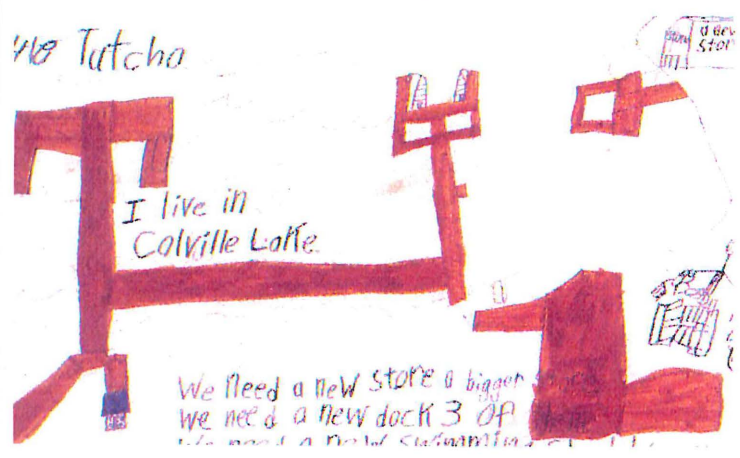 Tutcho
store
a new
Stor
I live in
Colville Lake
We need a new store a bigger
We need a new dock 3 of
We need a new swimming